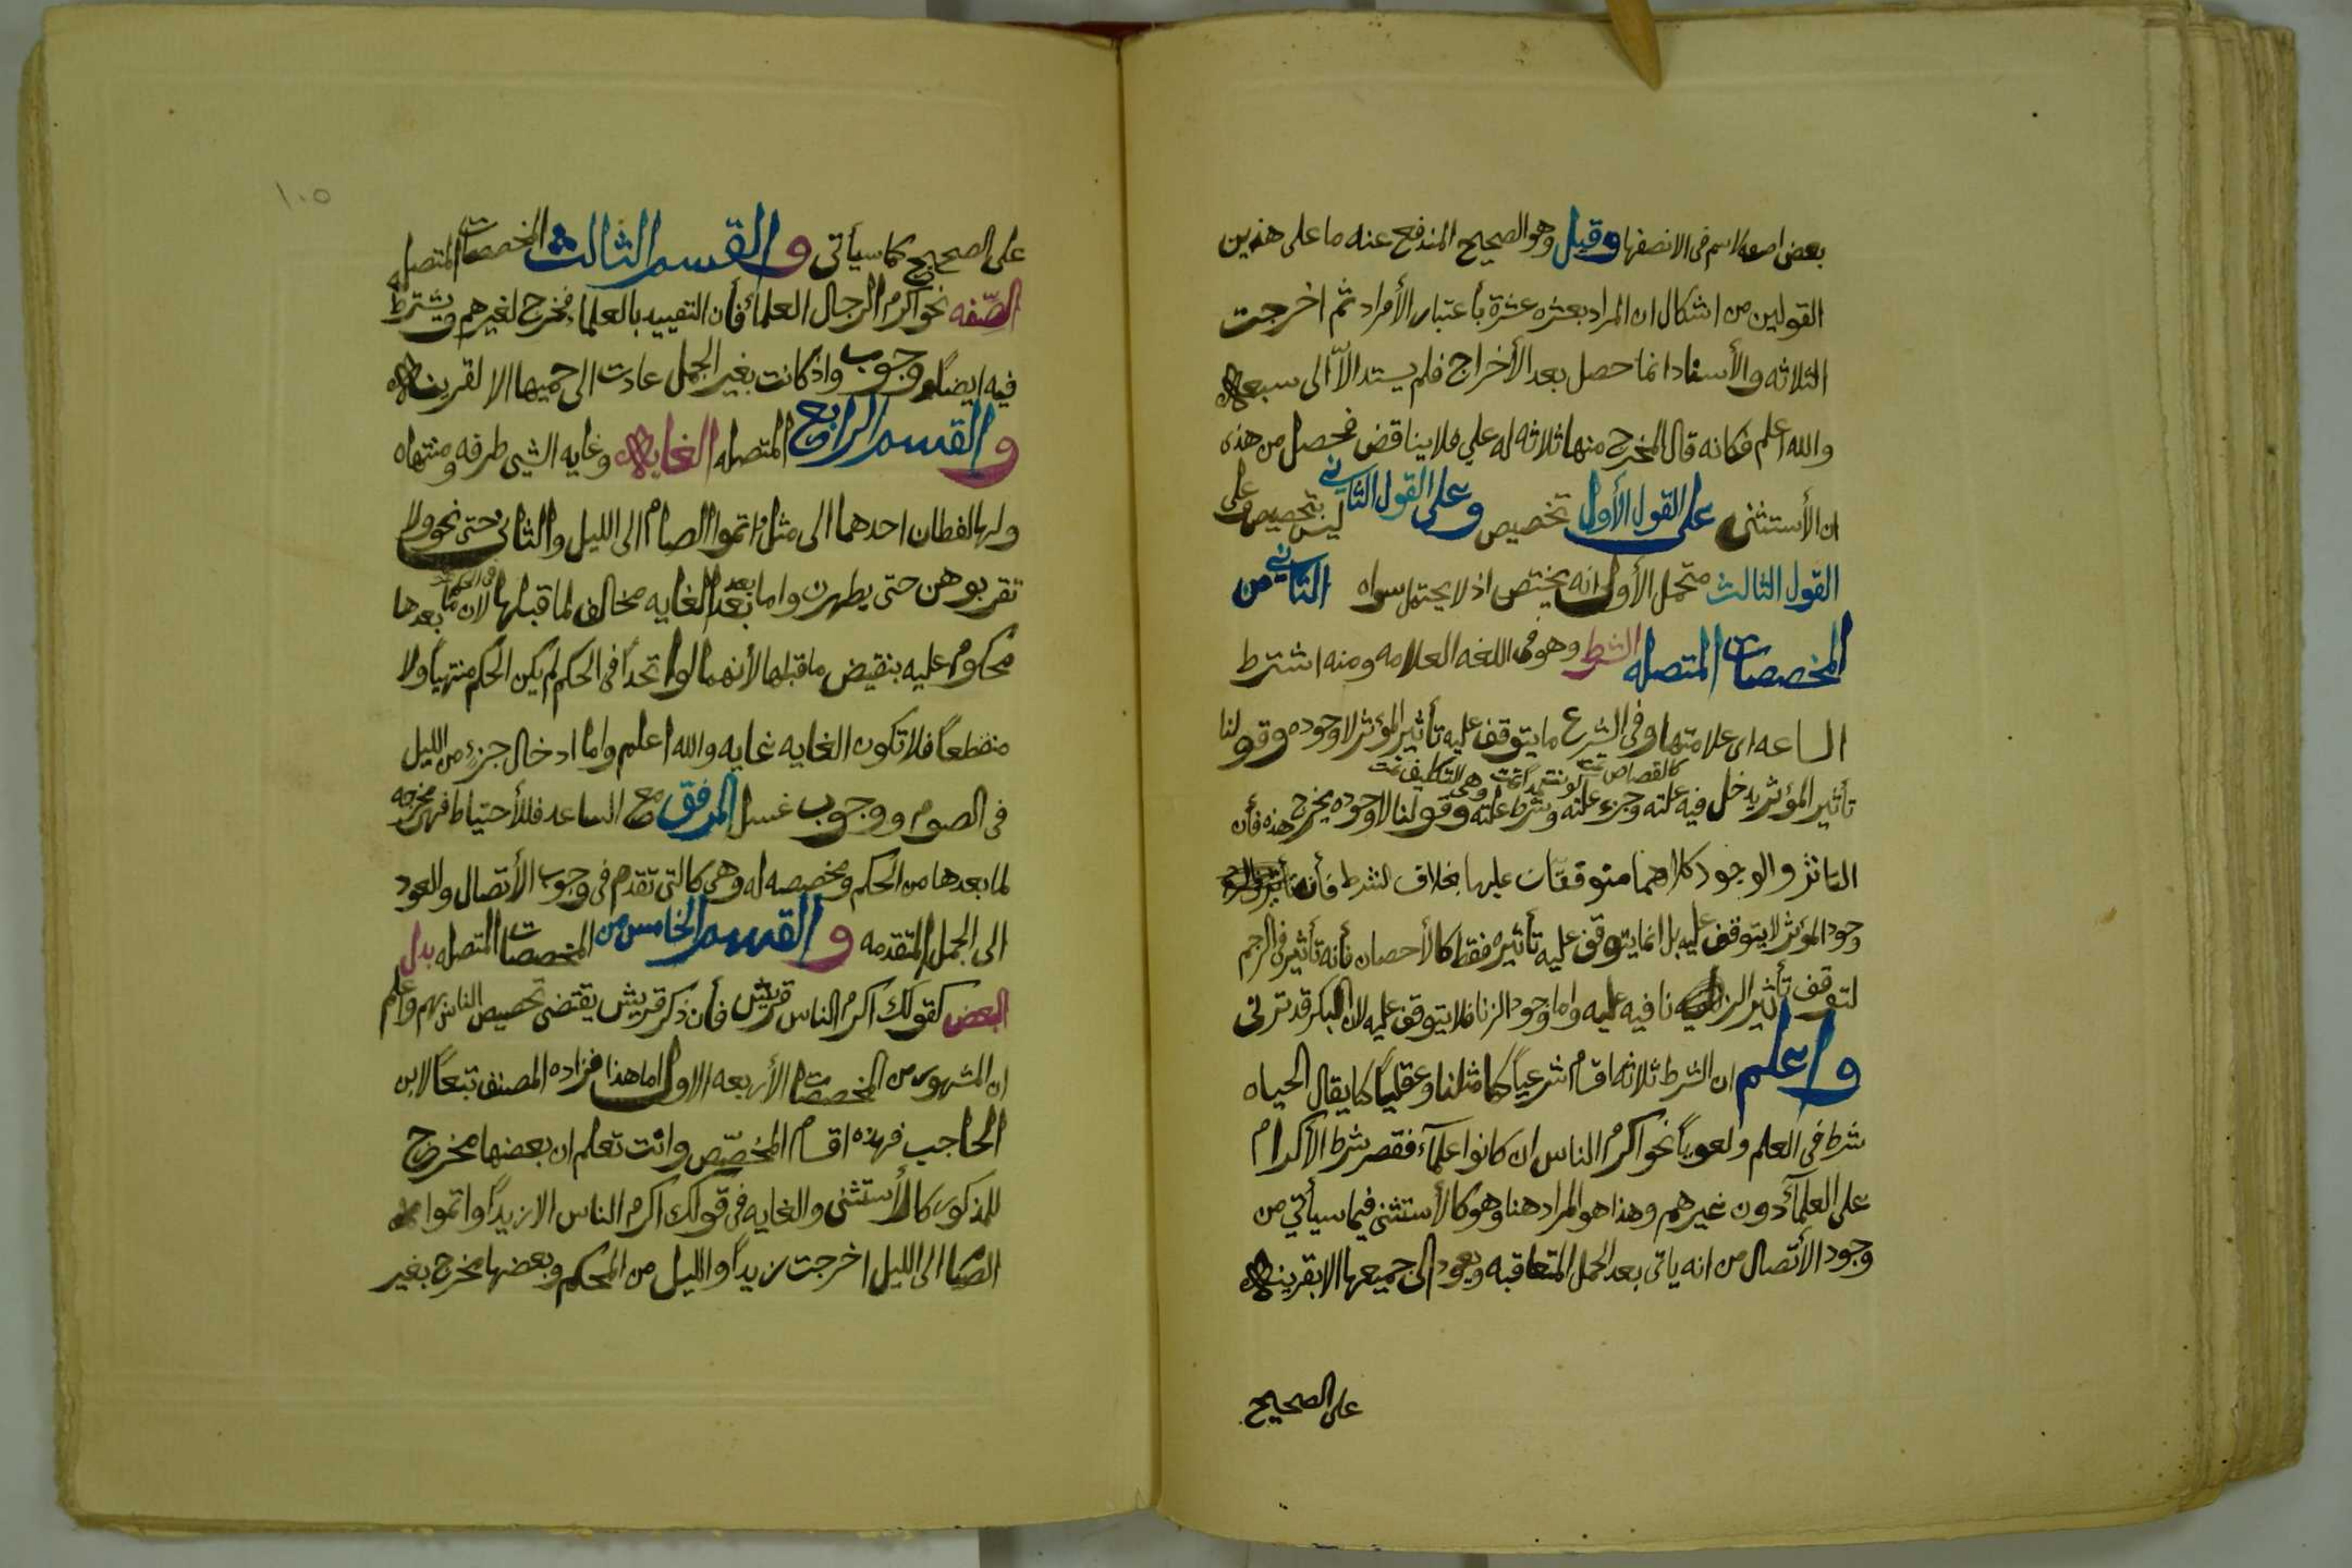 بعض اصعه لاسم فى الا نصفها وقيل وهو الصحيح المندفع عنه ما على هذين
القولين من اشكال ان المراد بعشره عشرة بأعتبار الأفراد ثم اخرجت
الثلاثه والأسناد انما حصل بعد الأخراج فلم يسند الاّ الى سبعه
والله اعلم فكانه قال المخرج منها ثلاثه له علي فلا يناقض فحصل من هذه
ان الأستثنى على القول الأول تخصيص وعلى القول الثاني ليس بتخصيص وعلى
القول الثالث محتمل الأول انه يختص اذ لا يحتمل سواه الثاني من
المخصصات المتصله الشرط وهو فى اللغه العلامه ومنه اشترط
الساعه اى علامتها وفى الشرع ما يتوقف عليه تأثير المؤثر لا وجوده وقولنا
كالقصاص تمت لو نتعمداً تمت وهى التكليف تمت
تأثير المؤثر يدخل فيه علته وجزء علته وشرط علته وقولنا لا وجوده يخرج هذه فأن
التاثر والوجود كلاهما متوقفات عليها بخلاف الشرط فأن
وجود المؤثر لا يتوقف عليه بل انما يتوقف عليه تأثيره فقط كالأحصان فأنه تأثير فى الرجم
لتوقف تأثير الزنا فيه عليه واما وجود الزنا فلا يتوقف عليه لان البكر قد تزنى
واعلم ان الشرط ثلاثه اقسام شرعياً كما مثلنا وعقلياً كما يقال الحياه
شرط فى العلم ولعوياً نحو اكرم الناس ان كانوا علمآء فقصر شرط الاكرام
على العلمآء دون غيرهم وهذا هو المراد هنا وهو كالأستثنى فيما سيأتي من
وجود الأتصال من انه ياتى بعد الجمل المتعاقبه ويعود الى جميعها الا بقرينه
على الصحيح
١٠٥
على الصحيح كما سيأتى والقسم الثالث المخصصات المتصله
الصّفه نحو اكرم الرجال العلمأ فأن التقييد بالعلماء مخرج لغيرهم ويشترط
فيه ايضاً وجوب واذ كانت بغير الجمل عادت الى جميها الا لقرينه
والقسم الرابع المتصله الغايه وغايه الشى طرفه ومنتهاه
ولها لفظان احدهما الى مثل اتموا الصام الى الليل والثانى حتى نحو ولا
تقربوهن حتى يطهرن واما بعد الغايه مخالف لما قبلها فى الحكم لان ما بعدها
محكوم عليه بنقيض ما قبلها لأنهما لوا تحدا فى الحكم لم يكن الحكم منتهياً ولا
منقطعاً فلا تكون الغايه غايه والله اعلم واما ادخال جزء من الليل
فى الصوم ووجوب غسل المرفق مع الساعد فللأحتياط فهى مخرجه
لما بعدها من الحكم ومخصصه له وهى كالتى تقدم فى وجوب الأتصال والعود
الى الجمل المتقدمه والقسم الخامس من المخصصات المتصله بدل
البعض كقولك اكرم الناس قريش فأن ذكر قريش يقتضى تخصيص الناس بهم واعلم
ان المشهور من المخصصات الأربعه الاول اما هذا فزاده المصنف تبعاً لابن
الحاجب فهذه اقسام المخصّص وانت تعلم ان بعضها مخرج
للمذكور كالأستثنى والغايه فى قولك اكرم الناس الا زيداً واتموا
الصيام الى الليل اخرجت زيداً والليل من الحكم وبعضها مخرج بغير